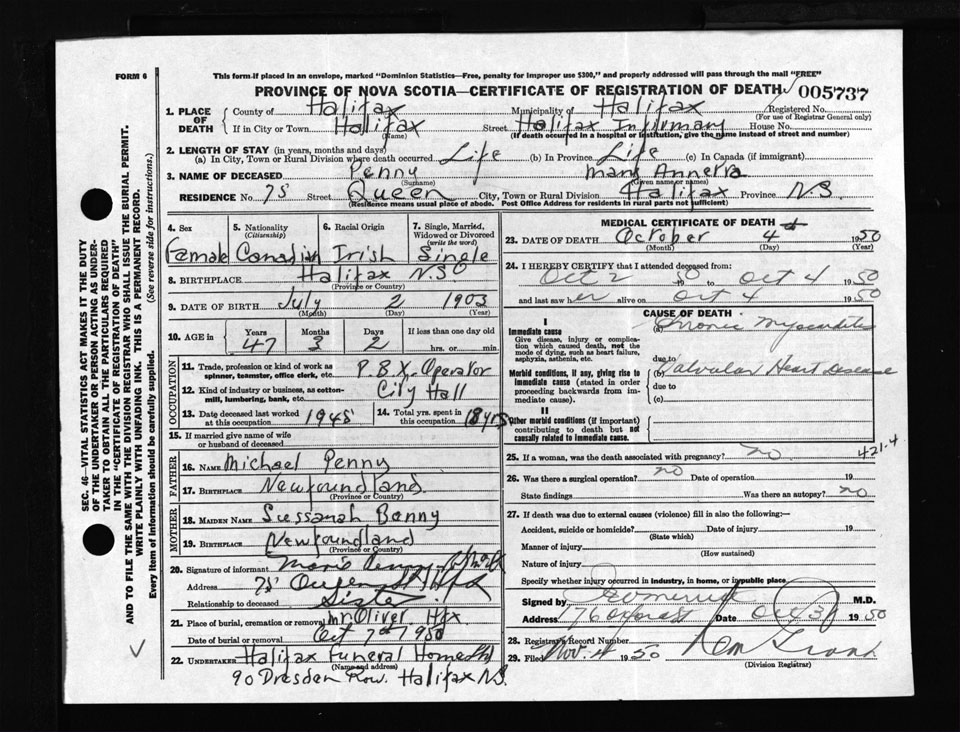 FORM 6
This form if placed in an envelope, marked "Dominion Statistics—Free, penalty for improper use $300," and properly addressed will pass through the mail "FREE"
PROVINCE OF NOVA SCOTIA—CERTIFICATE OF REGISTRATION OF DEATH 005737
1. PLACE OF DEATH { County of Halifax Municipality of Halifax Registered No. (For use of Registrar General only)
If in City or Town Halifax (Name) Street Halifax Infirmary House No.
(If death occurred in a hospital or institution, give the name instead of street and number)
2. LENGTH OF STAY (in years, months and days)
(a) In City, Town or Rural Division where death occurred Life (b) In Province Life (c) In Canada (if immigrant)
3. NAME OF DECEASED Penny (Surname) Mary Annetta (Given name or names)
RESIDENCE No. 75 Street Queen City, Town or Rural Division Halifax Province N.S.
(Residence means usual place of abode. Post Office Address for residents in rural parts not sufficient)
4. Sex Female
5. Nationality (Citizenship) Canadian
6. Racial Origin Irish
7. Single, Married, Widowed or Divorced (write the word) Single
8. BIRTHPLACE Halifax N.S. (Province or Country)
9. DATE OF BIRTH July (Month) 2 (Day) 1903 (Year)
10. AGE in { Years 47 Months 3 Days 2 If less than one day old hrs. or min.
OCCUPATION
11. Trade, profession or kind of work as spinner, teamster, office clerk, etc. P.B.X. Operator
12. Kind of industry or business, as cotton-mill, lumbering, bank, etc. City Hall
13. Date deceased last worked at this occupation 1945
14. Total yrs. spent in this occupation 18 yrs
15. If married give name of wife or husband of deceased
FATHER
16. NAME Michael Penny
17. BIRTHPLACE Newfoundland (Province or Country)
MOTHER
18. MAIDEN NAME Sussanah Bonny
19. BIRTHPLACE Newfoundland (Province or Country)
20. Signature of informant Marie Penny
Address 75 Queen St Hfx
Relationship to deceased Sister
21. Place of burial, cremation or removal Mt Olivet Hfx
Date of burial or removal Oct 7th 1950
22. UNDERTAKER Halifax Funeral Home Ltd
(Name and address)
90 Dresden Row. Halifax N.S.
MEDICAL CERTIFICATE OF DEATH
23. DATE OF DEATH October (Month) 4th (Day) 1950 (Year)
24. I HEREBY CERTIFY that I attended deceased from:
Oct 2 1950 to Oct 4 1950
and last saw her alive on Oct 4 1950
CAUSE OF DEATH
I
Immediate cause
Give disease, injury or complication which caused death, not the mode of dying, such as heart failure, asphyxia, asthenia, etc.
(a) Chronic Myocarditis
due to
Morbid conditions, if any, giving rise to immediate cause (stated in order proceeding backwards from immediate cause).
(b) Valvular Heart Disease
due to
(c)
II
Other morbid conditions (if important) contributing to death but not causally related to immediate cause.
25. If a woman, was the death associated with pregnancy? no 421.4
26. Was there a surgical operation? no Date of operation 19
State findings Was there an autopsy? no
27. If death was due to external causes (violence) fill in also the following:—
Accident, suicide or homicide? (State which) Date of injury 19
Manner of injury (How sustained)
Nature of injury
Specify whether injury occurred in industry, in home, or in public place
Signed by M.D.
Address: 76 Date Oct 30 1950
28. Registrar's Record Number
29. Filed Nov. 4 1950
(Division Registrar)
SEC. 46—VITAL STATISTICS ACT MAKES IT THE DUTY
OF THE UNDERTAKER OR PERSON ACTING AS UNDERTAKER TO OBTAIN ALL THE PARTICULARS REQUIRED
IN THE "CERTIFICATE OF REGISTRATION OF DEATH"
AND TO FILE THE SAME WITH THE DIVISION REGISTRAR WHO SHALL ISSUE THE BURIAL PERMIT.
WRITE PLAINLY WITH UNFADING INK. THIS IS A PERMANENT RECORD.
Every item of information should be carefully supplied. (See reverse side for instructions.)